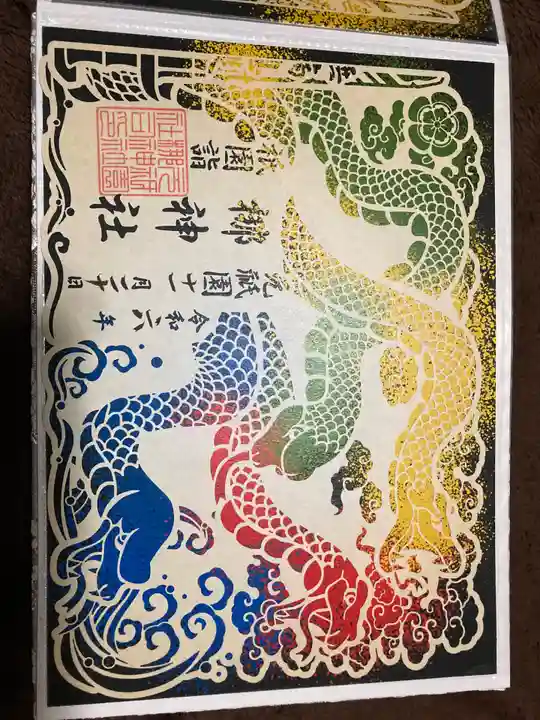 祇園詣
梛神社
元祇園
令和六年
十一月二十日